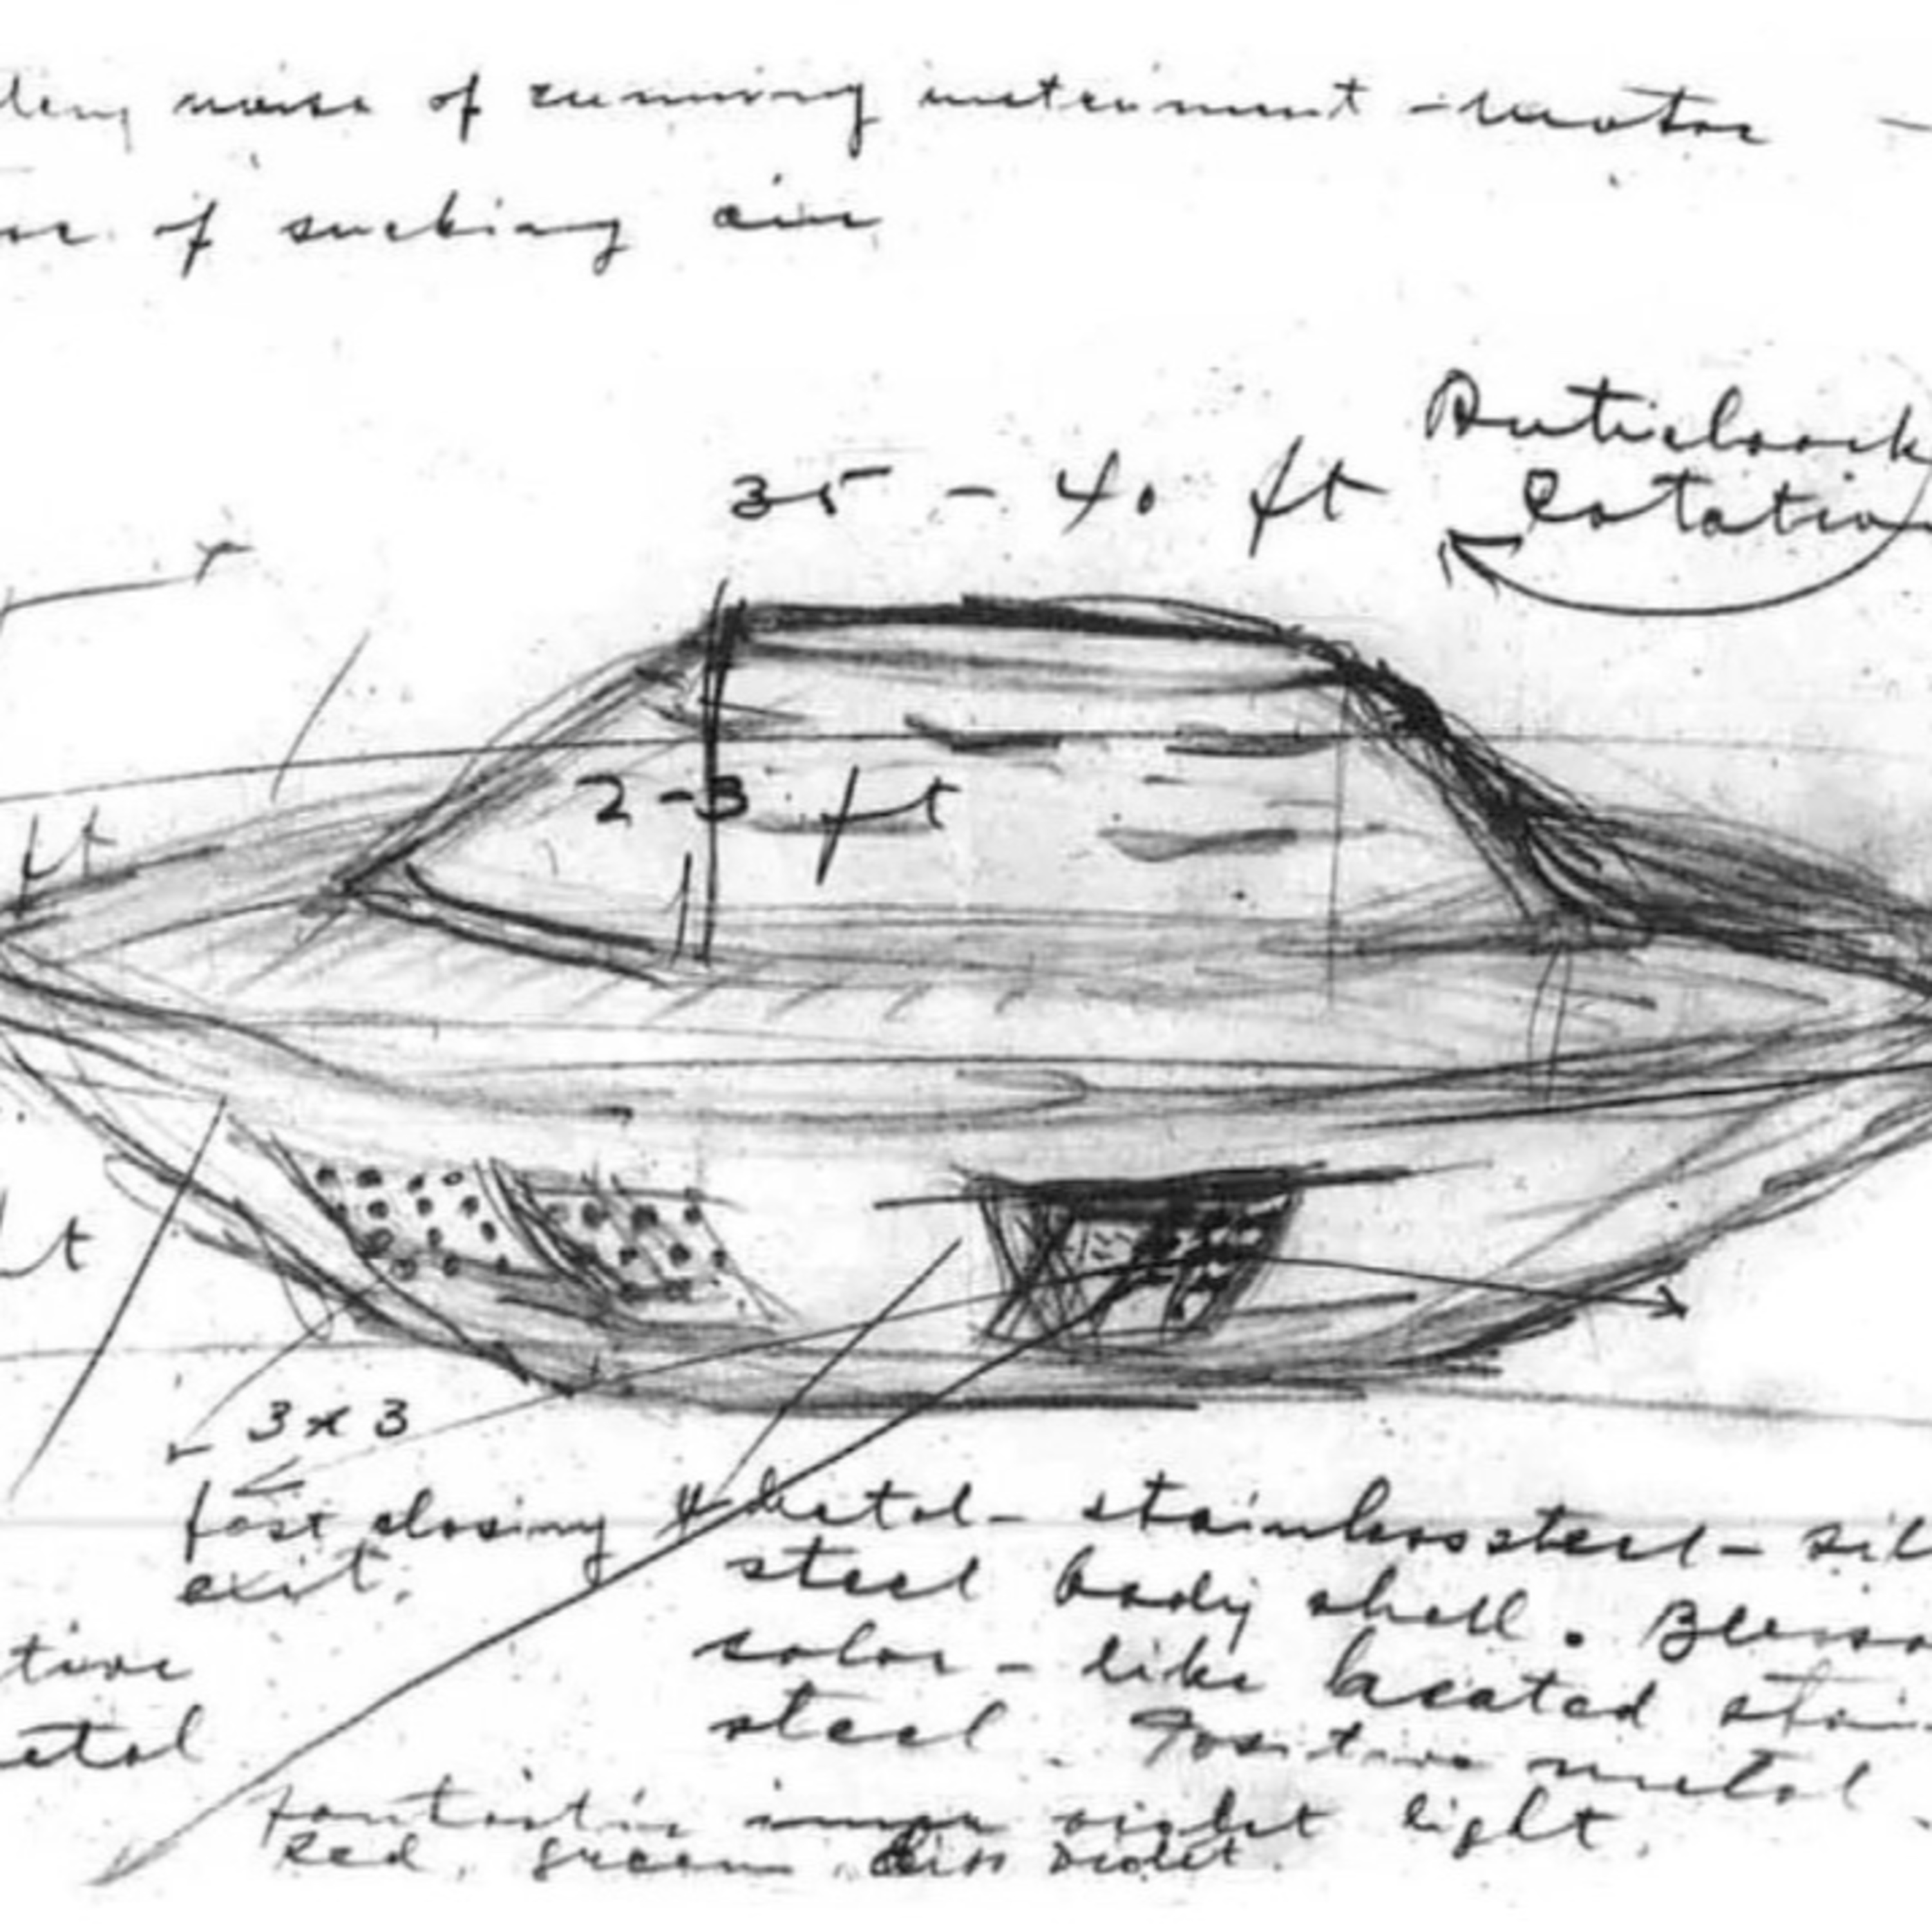 noise of running instrument - motor -
of sucking air
35 - 40 ft
Anticlock
Rotation
2-3 ft
ft
3 x 3
fast closing
exit.
metal - stainless steel - sil
steel body shell.
color - like heated stain
steel. Positive metal -
tive
etal
fantastic inner violet light.
Red, green, violet.